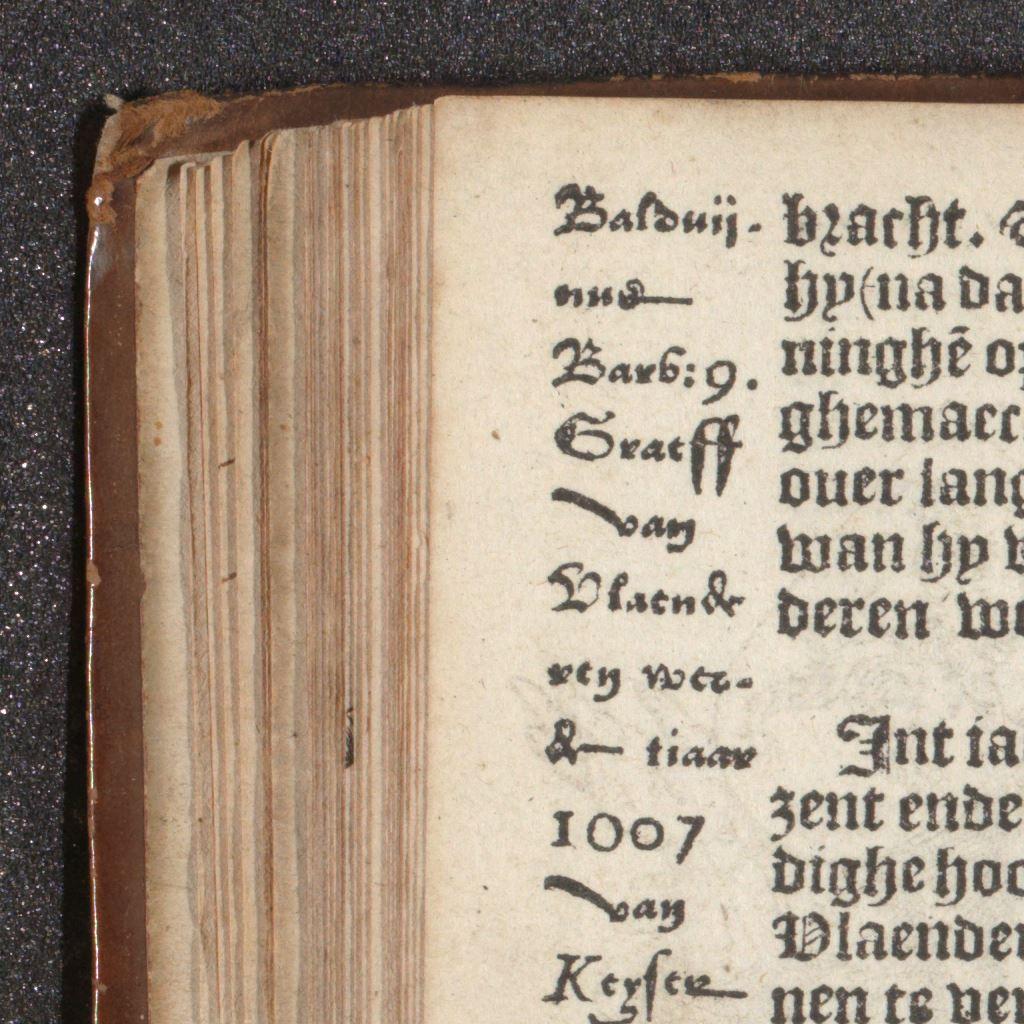 Balduij-
nus
Barb: 9.
Graeff
van
Vlaende
ren wer-
de tiaar
1007
van
Keyser
bracht.
hy (na da
ninghē o
ghemaec
ouer lang
wan hy
deren we
Int ia
zent ende
dighe hoo
Vlaender
nen te ver